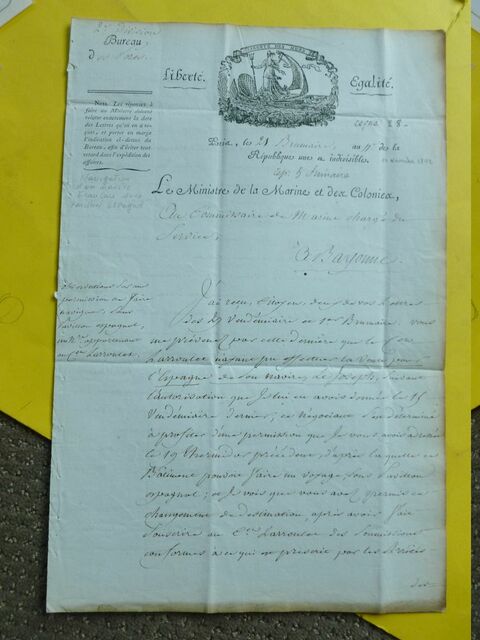 2e Division
Bureau
Des Ports
LIBERTÉ DES MERS
Liberté.
Egalité.
Nota. Les réponses à
faire au Ministre doivent
relater exactement la date
des Lettres qu'on en a re-
çues, et porter en marge
l'indication ci-dessus du
Bureau, afin d'éviter tout
retard dans l'expédition des
affaires.
Paris, les 21 Brumaire, an 11e de la
République une et indivisible.
Le Ministre de la Marine et des Colonies,
Au Commissaire de Marine chargé du
Service,
à Bayonne.
Observations sur une
permission de faire
naviguer, sous
Pavillon espagnol,
un Nre appartenant
au Cen Larroulet
J'ai reçu, Citoyen, deux de vos Lettres
des 27 Vendémiaire et 1er Brumaire. vous
me prévenez par cette dernière que le Cen
Larroulet n'ayant pu effectuer la Vente pour
l'Espagne de son navire Le Joseph, suivant
l'autorisation que je lui en avois donnée le 15
Vendémiaire dernier, ce négociant s'est déterminé
à profiter d'une permission que je vous avois adressée
le 19 Thermidor précédent, d'après laquelle ce
Bâtiment pouvoit faire un voyage sous Pavillon
espagnol; et je vois que vous avez permis ce
changement de destination, après avoir fait
souscrire au Cen Larroulet des Soumissions
conformes à ce qui est prescrit par les Arrêtés
des